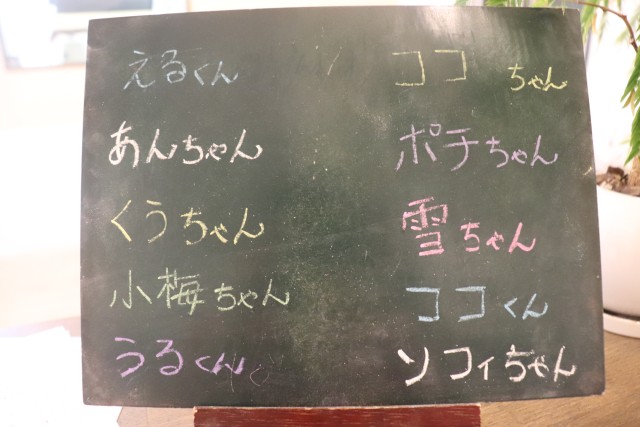 えるくん
あんちゃん
くうちゃん
小梅ちゃん
うるくん
ココ ちゃん
ポチちゃん
雪ちゃん
ココくん
ソフィちゃん